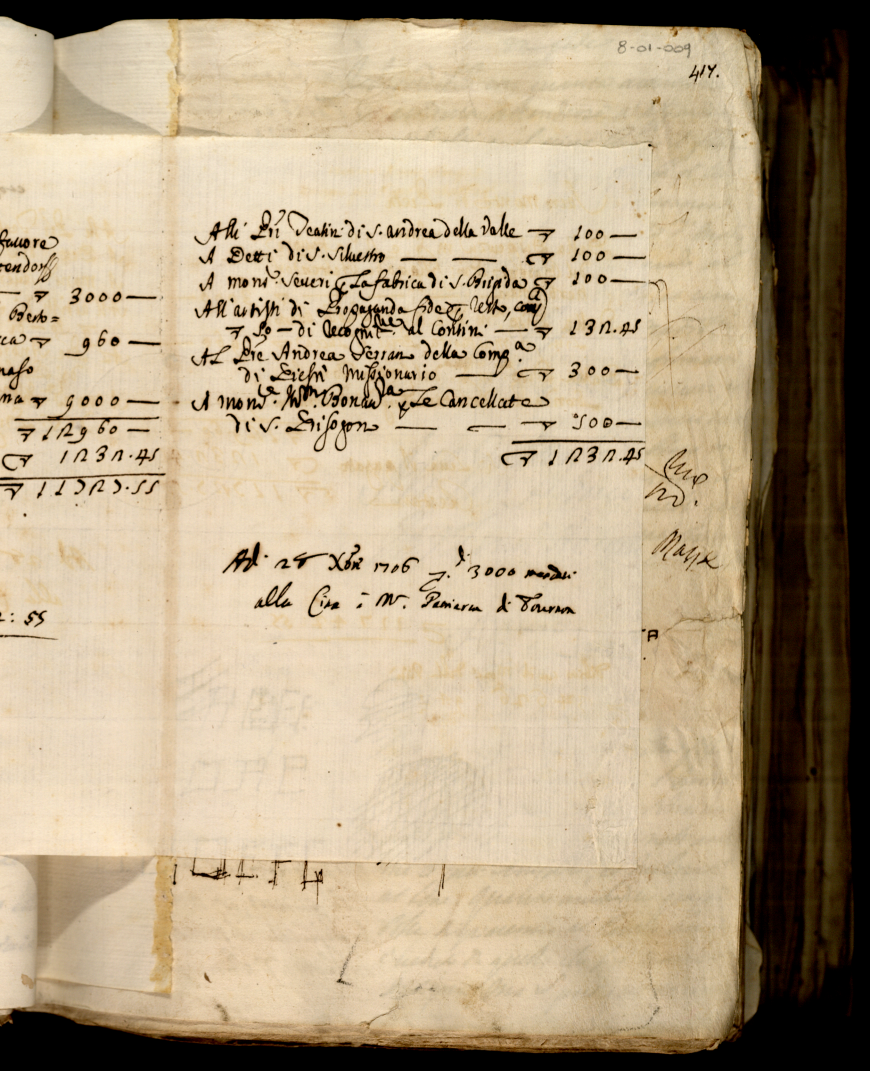 8-01-009
417.
favore
tendorff
— ▽ 3000 —
Berto=
ca ▽ 960 —
naso
na ▽ 9000 —
▽ 12960 —
▽ 1232.45
▽ 11727.55
: 55
Alli PPri Teatin di S. Andrea della Valle — ▽ 100 —
A Detti di S. Silvestro — — ▽ 100 —
A monsr Severi p La fabrica di S. Brigida ▽ 100 —
All'artisti di Propaganda fide p
▽ 50 — di recognit.ne al Contini — ▽ 132.45
Al Pre Andrea Serran della Comp.a
di Giesù Missionario — ▽ 300 —
A monsr Bonav.a p Le Cancellate
di S. Grisogon — — ▽ 500 —
▽ 1232.45
Adi 24 Xbre 1706 3000 mandati
alla Cina à Mr. Patriarca di Tournon
A